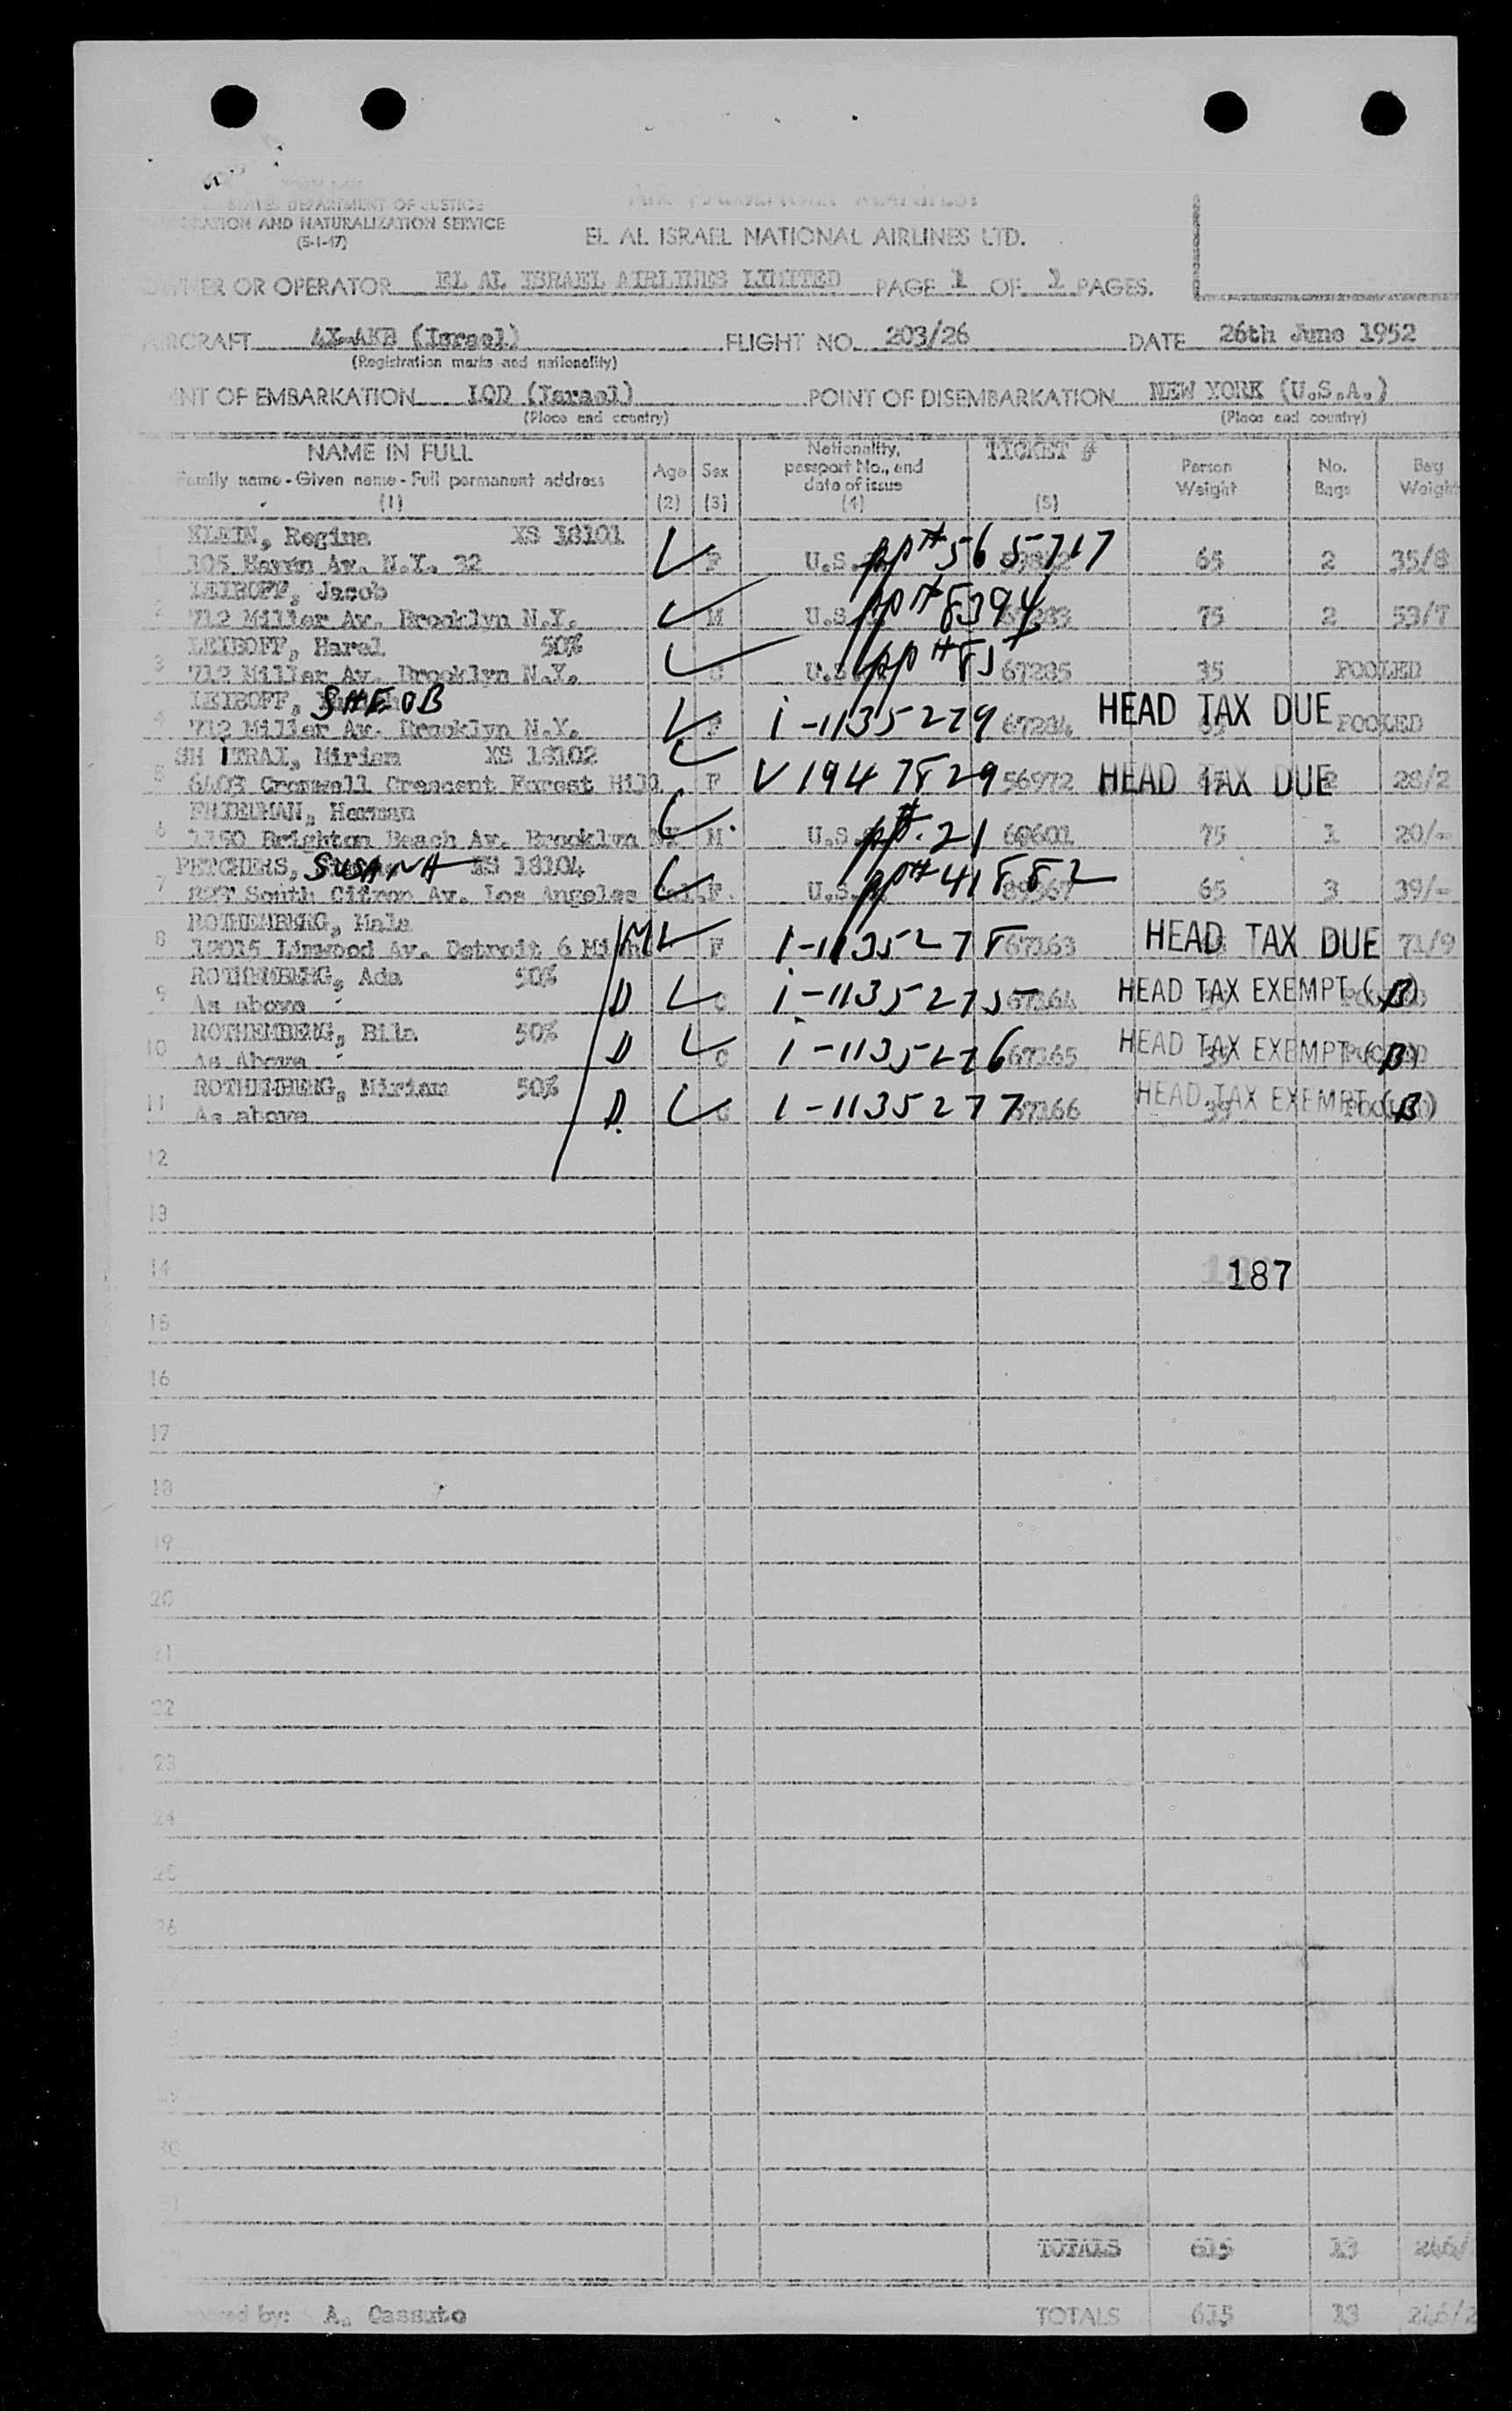 STATES DEPARTMENT OF JUSTICE
AND NATURALIZATION SERVICE
(5-1-47)
EL AL ISRAEL NATIONAL AIRLINES LTD.
OWNER OR OPERATOR EL AL ISRAEL AIRLINES LIMITED PAGE 1 OF 1 PAGES.
AIRCRAFT 4X-AKB (Israel) FLIGHT NO. 203/26 DATE 26th June 1952
(Registration marks and nationality)
INT OF EMBARKATION LOD (Israel) POINT OF DISEMBARKATION NEW YORK (U.S.A.)
(Place and country) (Place and country)
NAME IN FULL
Family name - Given name - Full permanent address
(1)
Age
(2)
Sex
(3)
Nationality,
passport No., and
date of issue
(4)
TICKET #
(5)
Person
Weight
No.
Bags
Bag
Weight
KLEIN, Regina XS 18101
Av. N.Y. 32 F U.S. pp# 565717 65 2 35/8
LEIBOFF, Jacob
2 712 Miller Av. Brooklyn N.Y. M U.S. pp# 8394 75 2 53/7
LEIBOFF, Harel 50%
3 712 Miller Av. Brooklyn N.Y. C U.S. pp# 85 67285 35 POOLED
LEIBOFF, SHEOB
4 712 Miller Av. Brooklyn N.Y. F i-1135279 67284 HEAD TAX DUE POOLED
SH ITRAI, Miriam XS 18102
5 Cromwell Crescent Forest Hill F V 1947829 56972 HEAD TAX DUE 2 28/2
FRIEDMAN, Herman
6 1150 Brighton Beach Av. Brooklyn NY M U.S. pp#. 21 60601 75 1 20/-
PETCHERS, SUSANA XS 18104
7 South Citron Av. Los Angeles Cal. F. U.S. pp# 418882 65 3 39/-
ROTHENBERG, Mala
8 12015 Linwood Av. Detroit 6 Mich M F i-1135278 67363 HEAD TAX DUE 71/9
ROTHENBERG, Ada 50%
9 As above D C i-1135275 67364 HEAD TAX EXEMPT (B)
ROTHENBERG, Bila 50%
10 As Above D C i-1135276 67365 HEAD TAX EXEMPT (B)
ROTHENBERG, Miriam 50%
11 As above D. C i-1135277 67366 HEAD TAX EXEMPT (B)
12
13
14 187
15
16
17
18
19
20
21
22
23
24
25
26
30
31
TOTALS 615 13 246/
by: A. Cassuto TOTALS 615 13 246/2